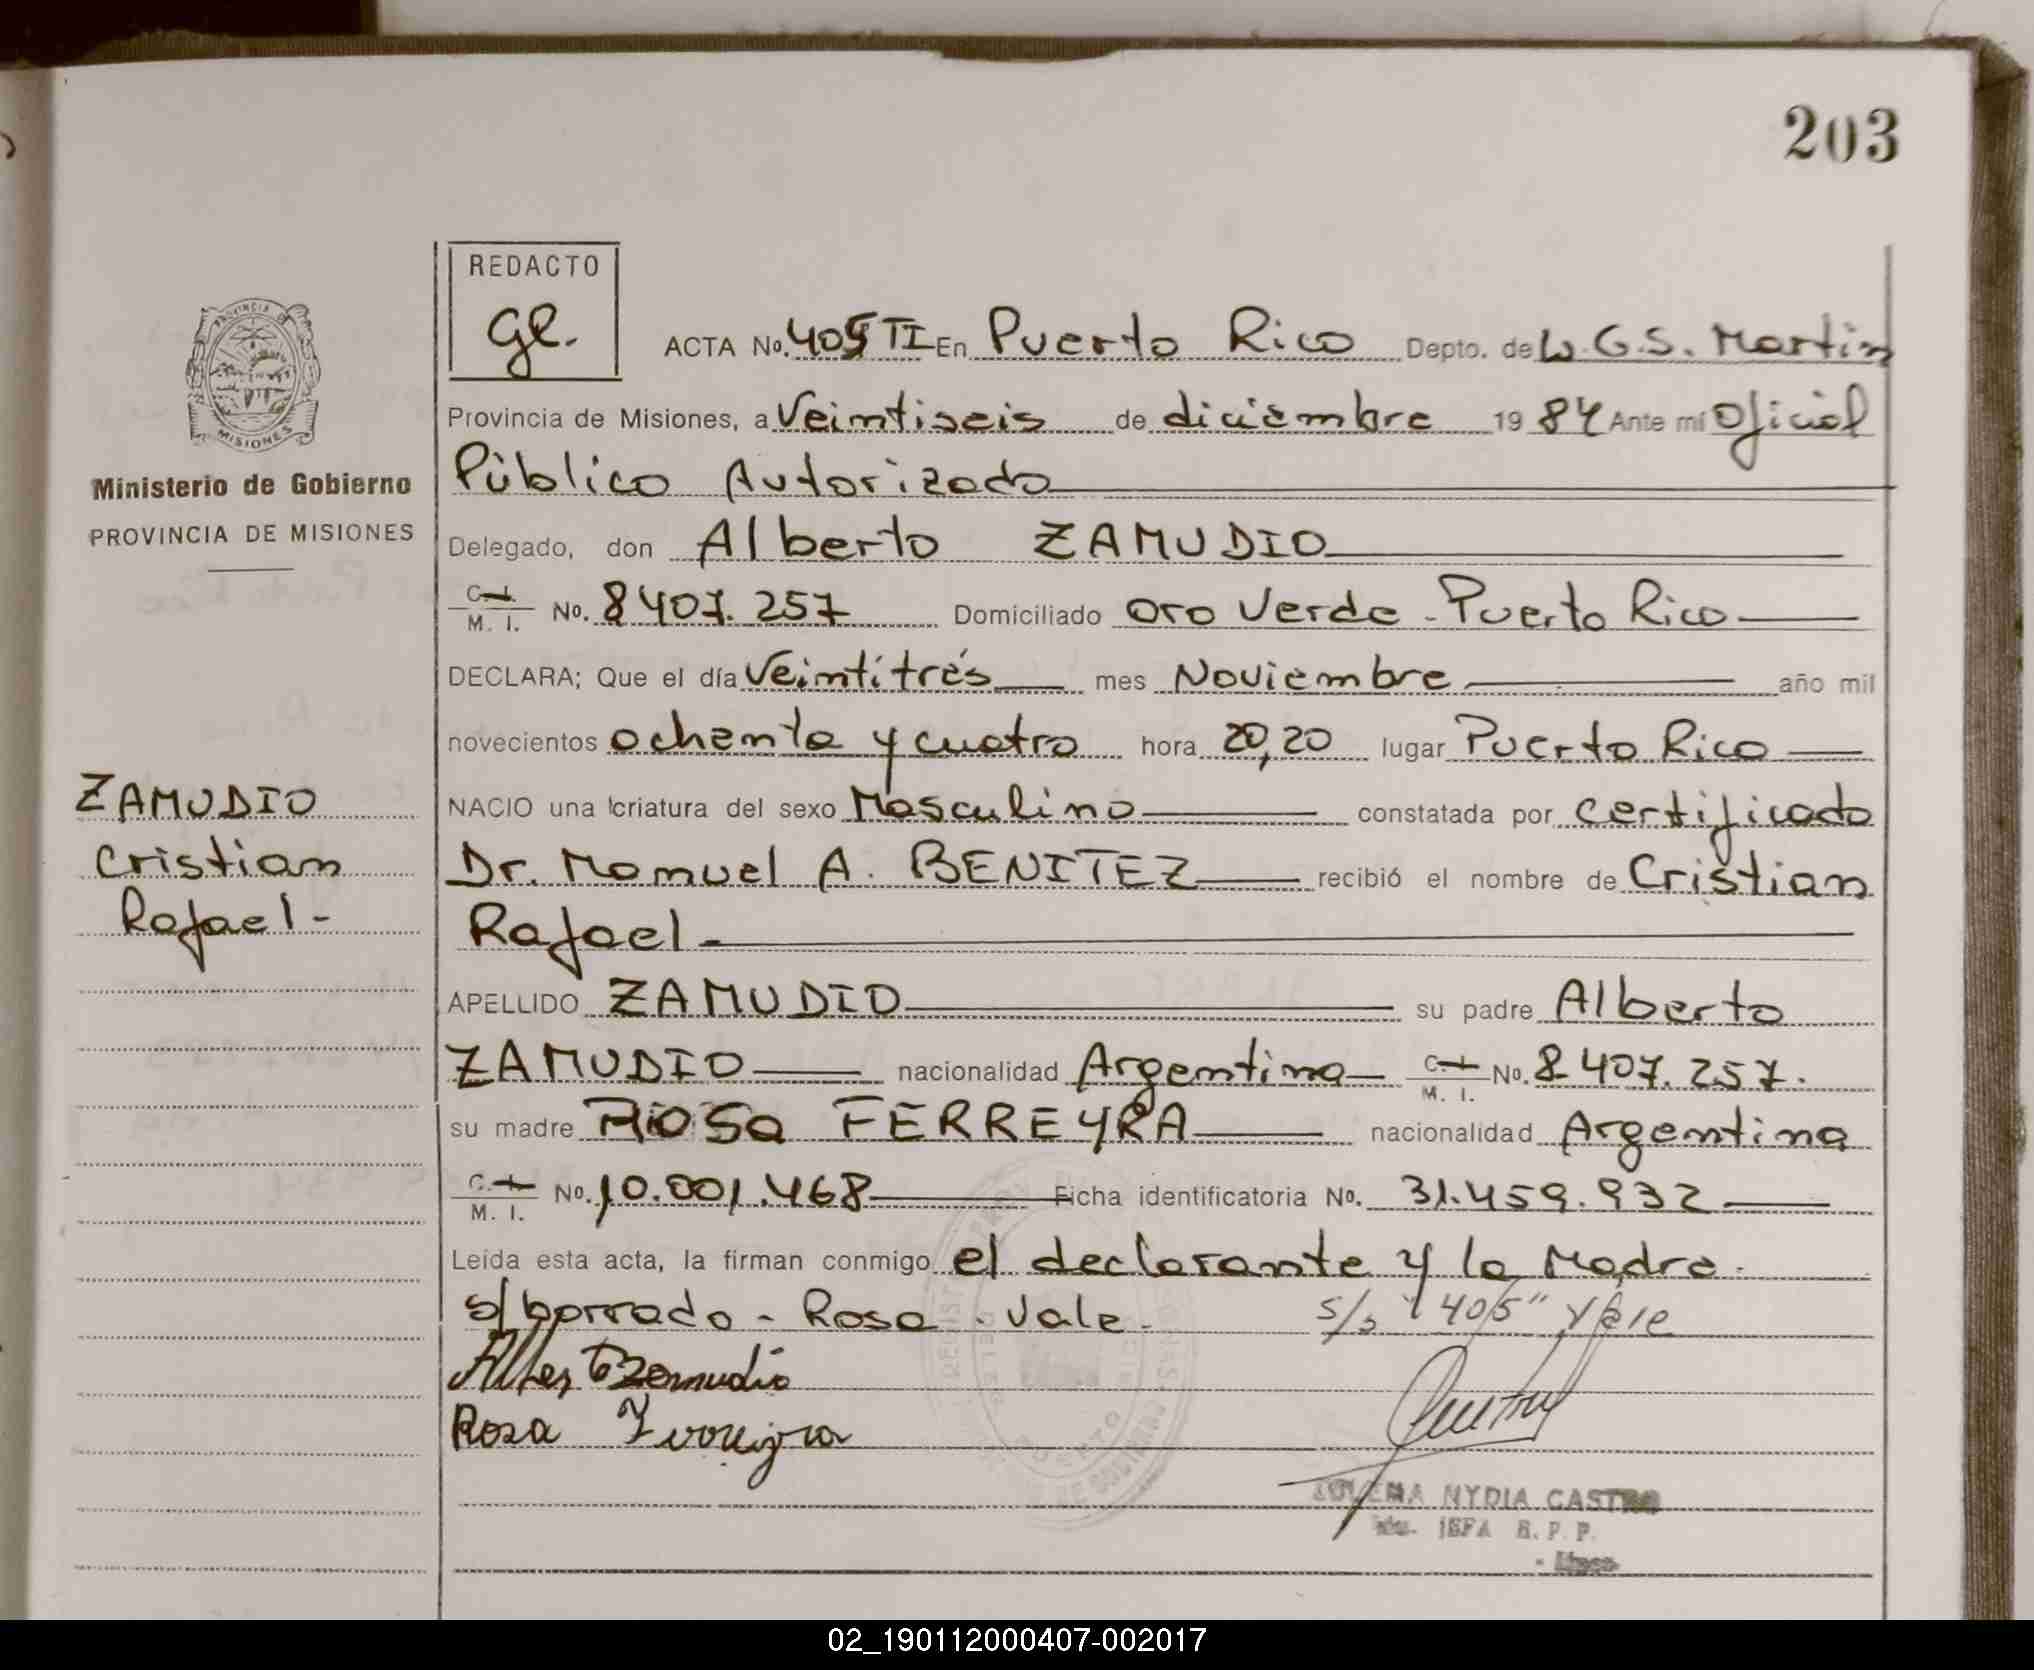 203
REDACTO
Ge.
ACTA No. 405 TI En Puerto Rico Depto. de L.G.S. Martin
PROVINCIA DE
MISIONES
Provincia de Misiones, a Veintiseis de diciembre 1984 Ante mí Oficial
Ministerio de Gobierno
Público Autorizado
PROVINCIA DE MISIONES
Delegado, don Alberto ZAMUDIO
C. I.
M. I. No. 8407.257 Domiciliado Oro Verde - Puerto Rico
DECLARA; Que el día Veintitrés mes Noviembre año mil
novecientos ochenta y cuatro hora 20,20 lugar Puerto Rico
ZAMUDIO
NACIO una criatura del sexo Masculino constatada por certificado
Cristian
Dr. Manuel A. BENITEZ recibió el nombre de Cristian
Rafael-
Rafael-
APELLIDO ZAMUDIO su padre Alberto
ZAMUDIO nacionalidad Argentina C. I. M. I. No. 8.407.257.
su madre Rosa FERREYRA nacionalidad Argentina
C. I.
M. I. No. 10.001.468 Ficha identificatoria No. 31.459.932
Leída esta acta, la firman conmigo el declarante y la Madre.
s/borrado - Rosa - Vale. s/s "405" Vale
Alberto Zamudio
Rosa Ferreyra
NYDIA CASTRO
JEFA R. P. P.
02_190112000407-002017